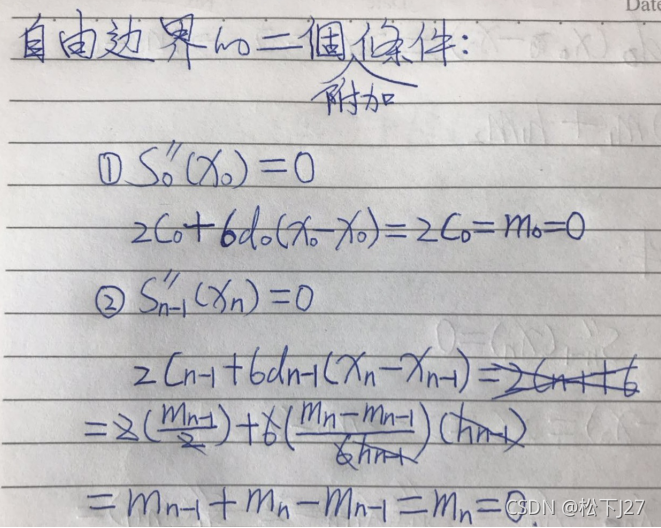 Date
自由边界的二個條件:
附加
① S₀''(x₀) = 0
2C₀ + 6d₀(x₀ - x₀) = 2C₀ = m₀ = 0
② Sₙ₋₁''(xₙ) = 0
2Cₙ₋₁ + 6dₙ₋₁(xₙ - xₙ₋₁) = 2Cₙ₋₁ + 6
= 2(mₙ₋₁/2) + 6((mₙ - mₙ₋₁)/(6hₙ₋₁))(hₙ₋₁)
= mₙ₋₁ + mₙ - mₙ₋₁ = mₙ = 0
CSDN @松下J27